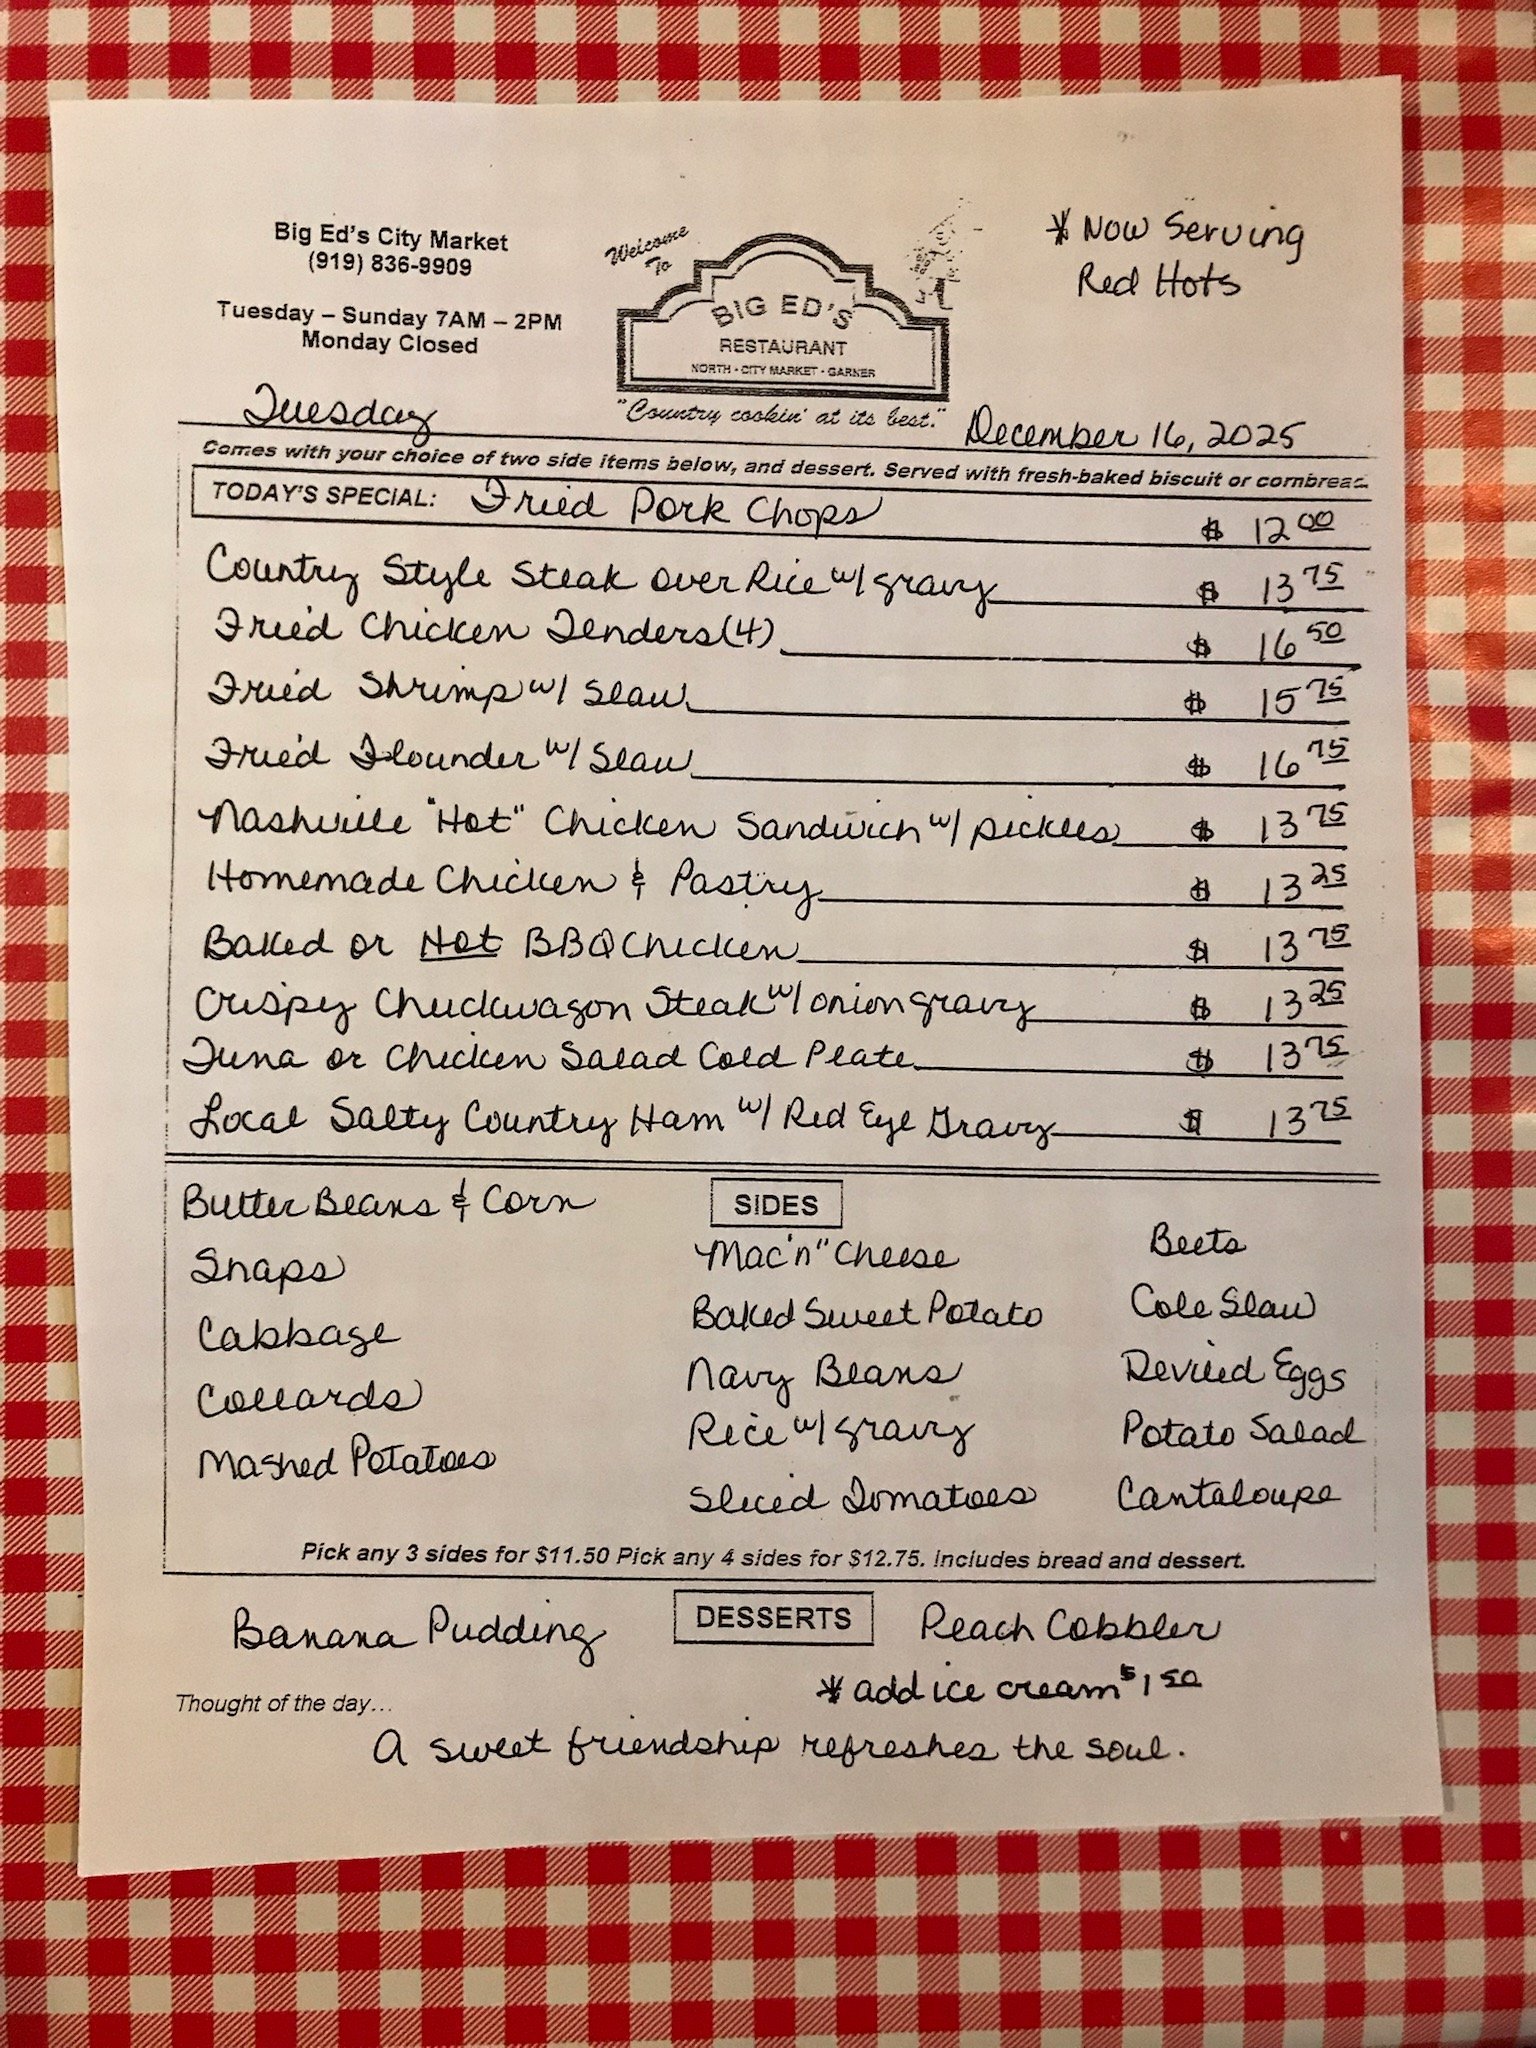 Big Ed's City Market
(919) 836-9909
Tuesday – Sunday 7AM – 2PM
Monday Closed
Welcome
To
BIG ED'S
RESTAURANT
NORTH - CITY MARKET - GARNER
"Country cookin' at its best."
* Now Serving
Red Hots
Tuesday
December 16, 2025
Comes with your choice of two side items below, and dessert. Served with fresh-baked biscuit or cornbread.
TODAY'S SPECIAL: Fried Pork Chops $ 12 00
Country Style Steak over Rice w/ gravy $ 13 75
Fried Chicken Tenders (4) $ 16 50
Fried Shrimp w/ Slaw $ 15 75
Fried Flounder w/ Slaw $ 16 75
Nashville "Hot" Chicken Sandwich w/ pickles $ 13 75
Homemade Chicken & Pastry $ 13 25
Baked or Hot BBQ Chicken $ 13 75
Crispy Chuckwagon Steak w/ onion gravy $ 13 25
Tuna or Chicken Salad Cold Plate $ 13 75
Local Salty Country Ham w/ Red Eye Gravy $ 13 75
SIDES
Butter Beans & Corn
Snaps
Cabbage
Collards
Mashed Potatoes
Mac'n" Cheese
Baked Sweet Potato
Navy Beans
Rice w/ gravy
Sliced Tomatoes
Beets
Cole Slaw
Deviled Eggs
Potato Salad
Cantaloupe
Pick any 3 sides for $11.50 Pick any 4 sides for $12.75. Includes bread and dessert.
DESSERTS
Banana Pudding
Peach Cobbler
* add ice cream $1 50
Thought of the day...
A sweet friendship refreshes the soul.